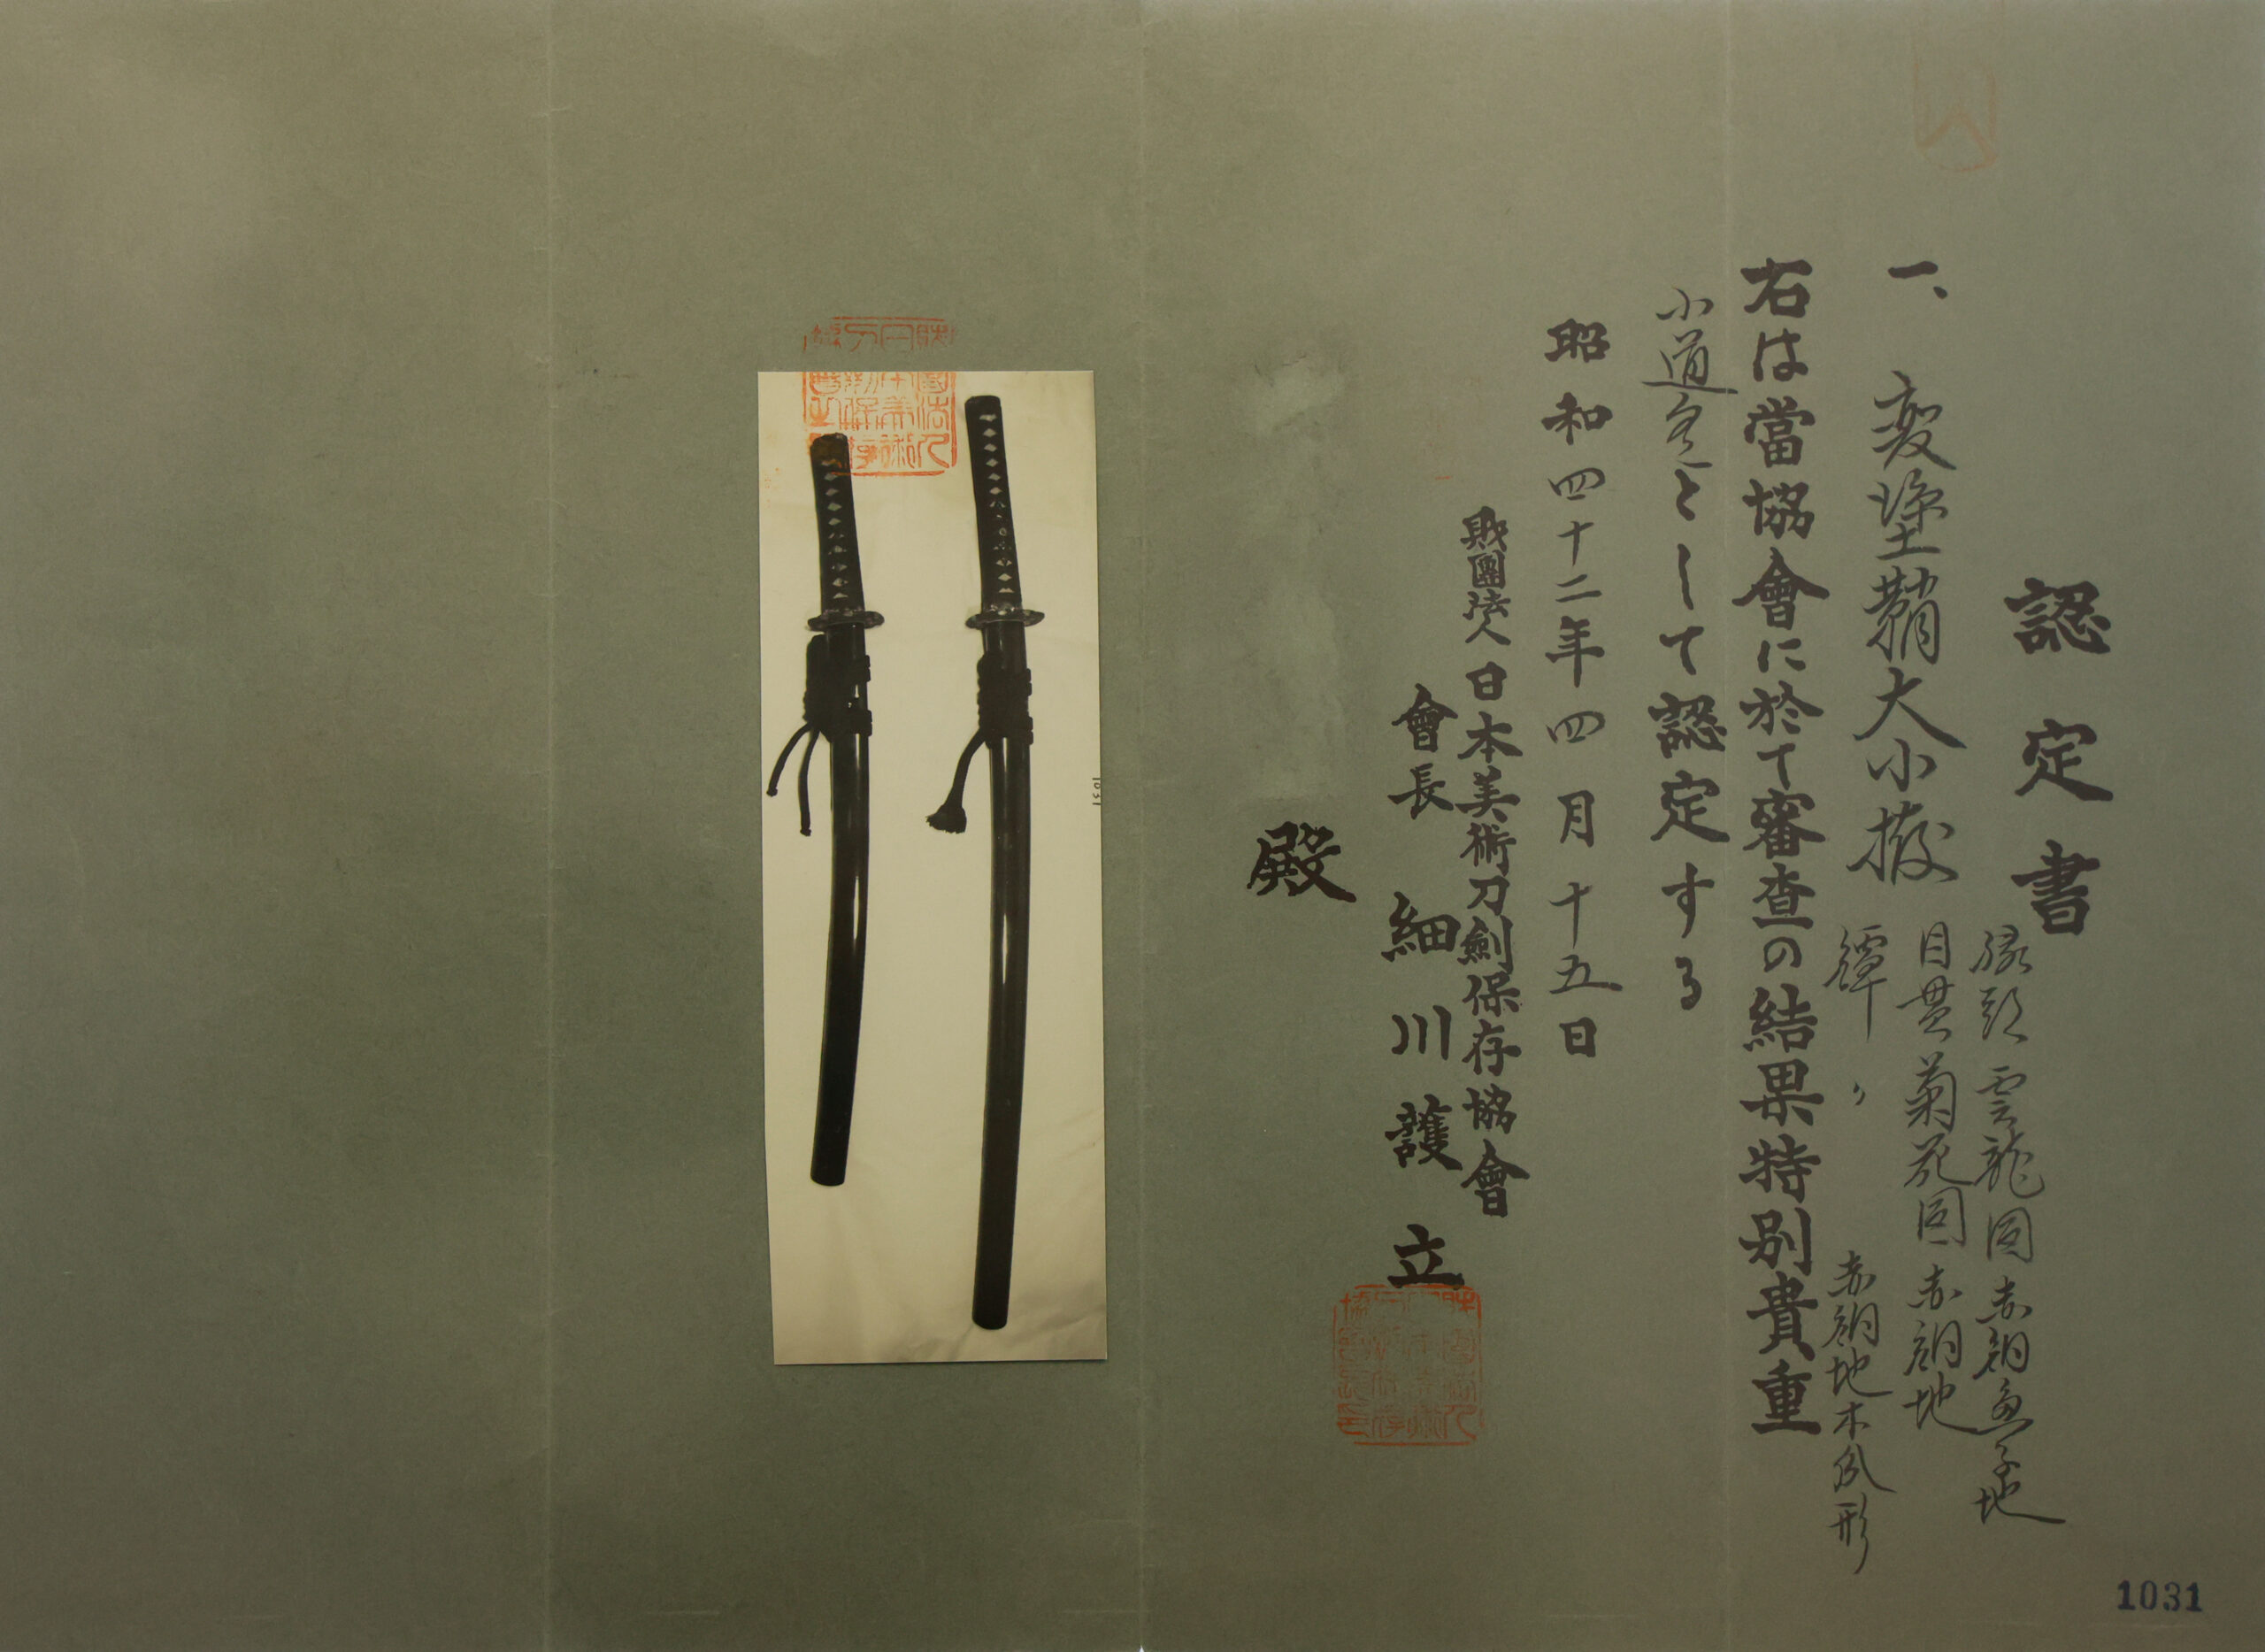 認定書
一、変塗鞘大小拵
縁頭 雲龍図 赤銅魚子地
目貫 菊花図 赤銅地
鐔 〃 赤銅地木瓜形
右は當協會に於て審査の結果特別貴重
小道具として認定する
昭和四十二年四月十五日
財團法人日本美術刀剣保存協會
會長 細川護立
殿
1031
1031